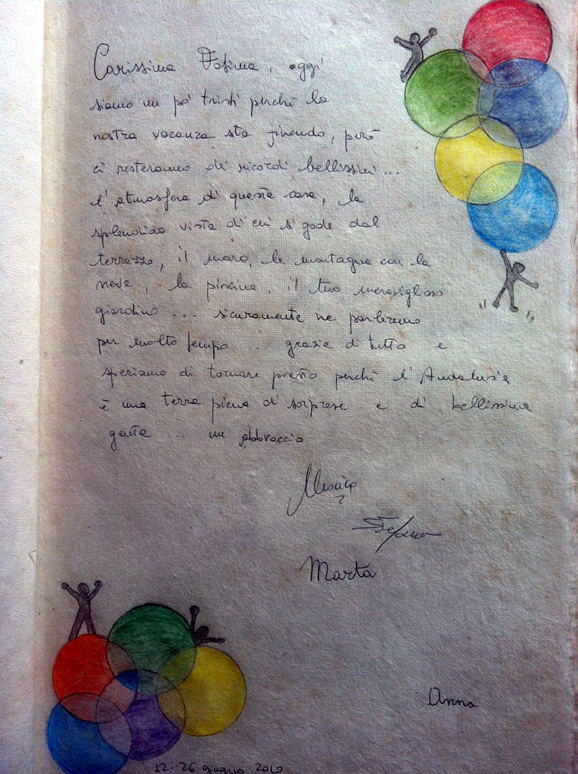 Carissima Fatima, oggi
siamo un po' tristi perché la
nostra vacanza sta finendo, però
ci resteranno dei ricordi bellissimi...
l'atmosfera di questa casa, la
splendida vista di cui si gode dal
terrazzo, il mare, le montagne con la
neve, la piscina, il tuo meraviglioso
giardino... sicuramente ne parleremo
per molto tempo... grazie di tutto e
speriamo di tornare presto perché l'Andalusia
è una terra piena di sorprese e di bellissima
gente... un abbraccio
Monica
Marta
Anna
12-26 giugno 2010